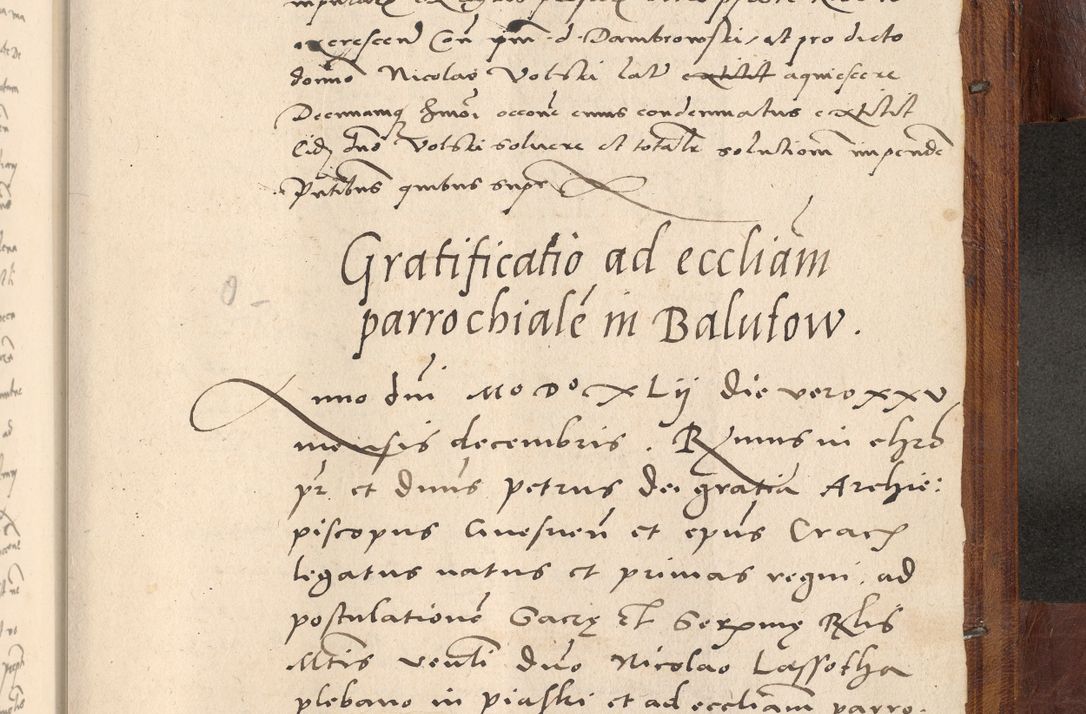 excrescen Con pm d Dambrowski, et pro dicto
domino Nicolao Volski latu extitit aquiescere
Decimamq̃ hmōi occone emus condemnatus extitit
Eidē dno Volski solvere et totalē solutionem impende
Pntibus quibus supr
Gratificatio ad eccliam
parrochialē in Balutow.
Anno dni Mo Do XLij die vero xxv
mensis decembris. Rmus in chro
pr. et dnus petrus dei gratia Archie:
piscopus Gnesnen et epus Crac
legatus natus et primas regni. ad
postulationē Sacrę et Serxmę Rlis
Mtis venli dno Nicolao Lassotha
plebano in piaski et ad eccliam parro: